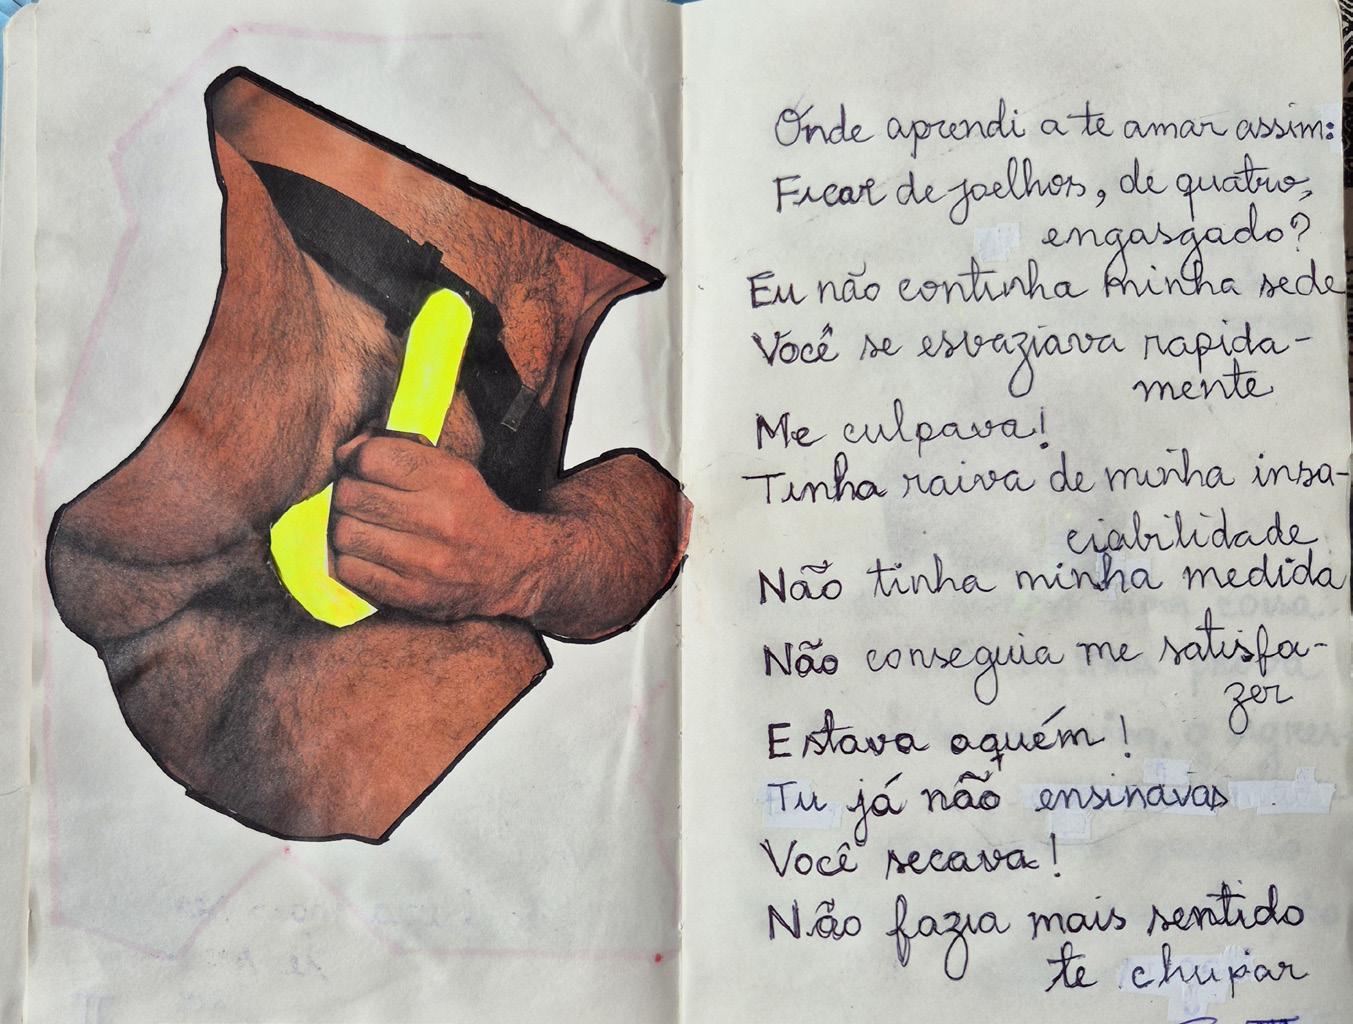 Onde aprendi a te amar assim:
Ficar de joelhos, de quatro,
engasgado?
Eu não continha minha sede
Você se esvaziava rapida-
mente
Me culpava!
Tinha raiva de minha insa-
ciabilidade
Não tinha minha medida
Não conseguia me satisfa-
zer
Estava aquém!
Tu já não ensinavas
Você secava!
Não fazia mais sentido
te chupar